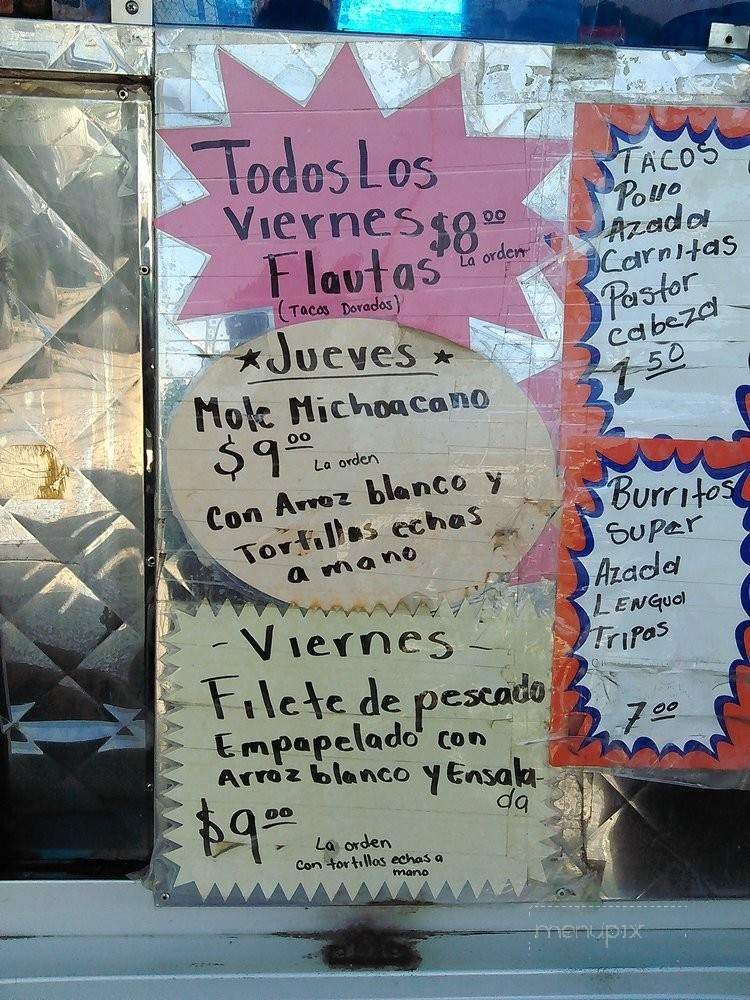 Todos Los
Viernes $8.00
Flautas La orden
(Tacos Dorados)
★Jueves★
Mole Michoacano
$9.00 La orden
con Arroz blanco y
Tortillas echas
a mano
- Viernes -
Filete de pescado
Empapelado con
Arroz blanco y Ensala-
da
$9.00
La orden
con tortillas echas a
mano
TACOS
Pollo
Azada
Carnitas
Pastor
cabeza
1.50
Burritos
Super
Azada
LENGUA
Tripas
7.00
menupix